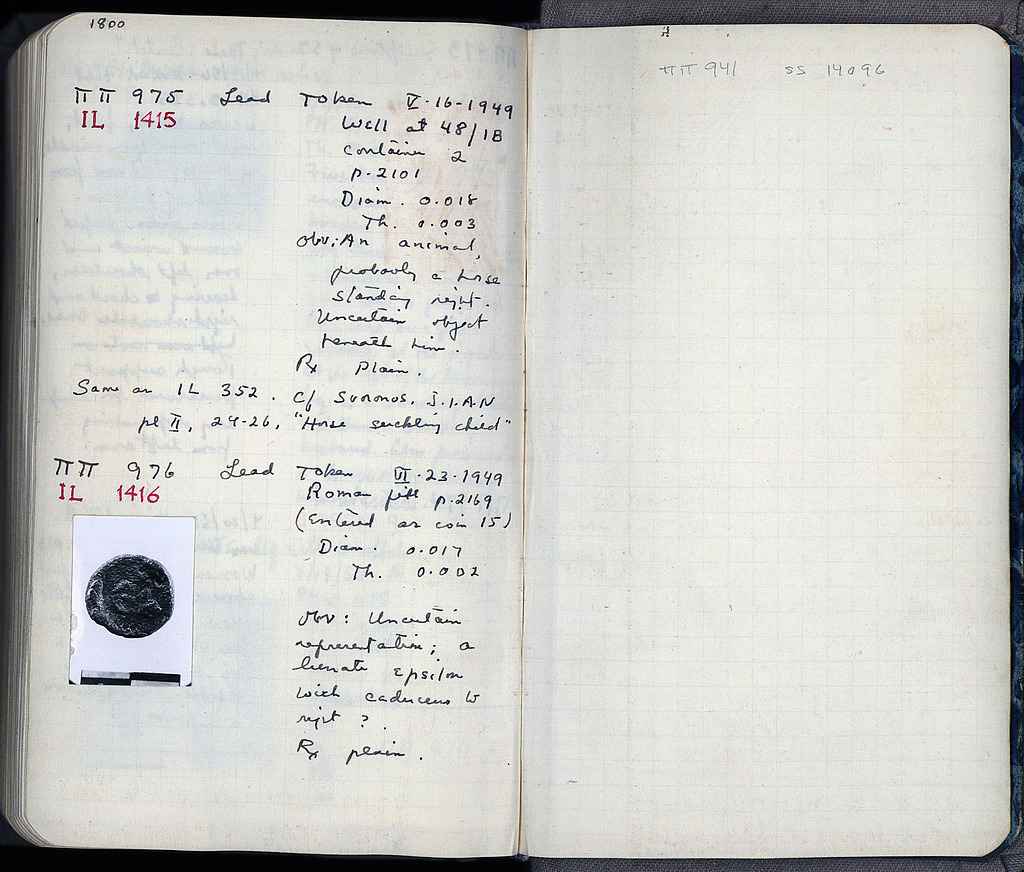 1800
ΠΠ 975 Lead Token V·16·1949
IL 1415
Well at 48/IB
container 2
p. 2101
Diam. 0.018
Th. 0.003
Obv: An animal,
probably a horse
standing right.
Uncertain object
beneath him.
Rx Plain.
Same as IL 352. cf Svoronos, J.I.A.N
pl II, 24-26, "Horse suckling child"
ΠΠ 976 Lead Token VI·23·1949
IL 1416
Roman fill p. 2169
(Entered as coin 15)
Diam. 0.017
Th. 0.002
Obv: Uncertain
representation; a
lunate epsilon
with caduceus to
right ?
Rx plain.
ΠΠ 941 SS 14096